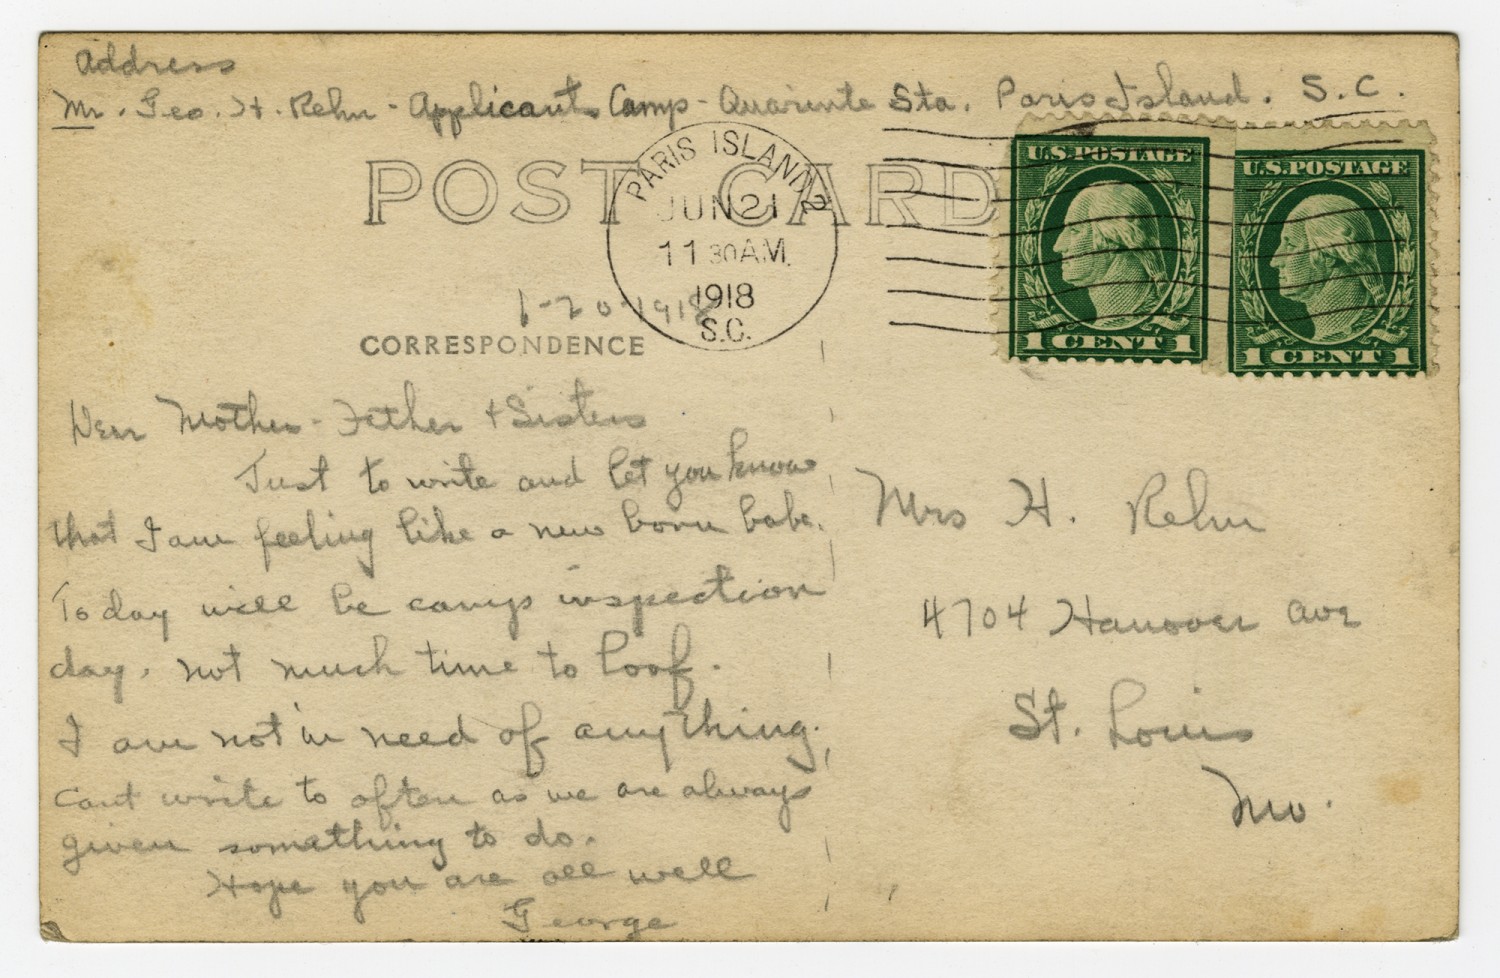 Address
Mr. Geo. H. Rehn - Applicants Camp - Quarinte Sta. Paris Island. S.C.
POST CARD
PARIS ISLAND
JUN 21
11 30 AM.
1918
S.C.
U.S. POSTAGE
1 CENT 1
U.S. POSTAGE
1 CENT 1
6-20-1918
CORRESPONDENCE
Dear Mother - Father + Sisters
Just to write and let you know
that I am feeling like a new born babe.
Today will be camp inspection
day. not much time to loof.
I am not in need of anything.
Cant write to often as we are always
given something to do.
Hope you are all well
George
Mrs H. Rehn
4704 Hanover Ave
St. Louis
Mo.